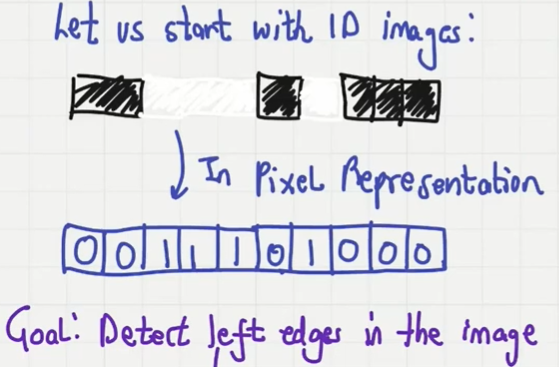 Let us start with 1D images:
In Pixel Representation
0 0 1 1 1 0 1 0 0 0
Goal: Detect left edges in the image